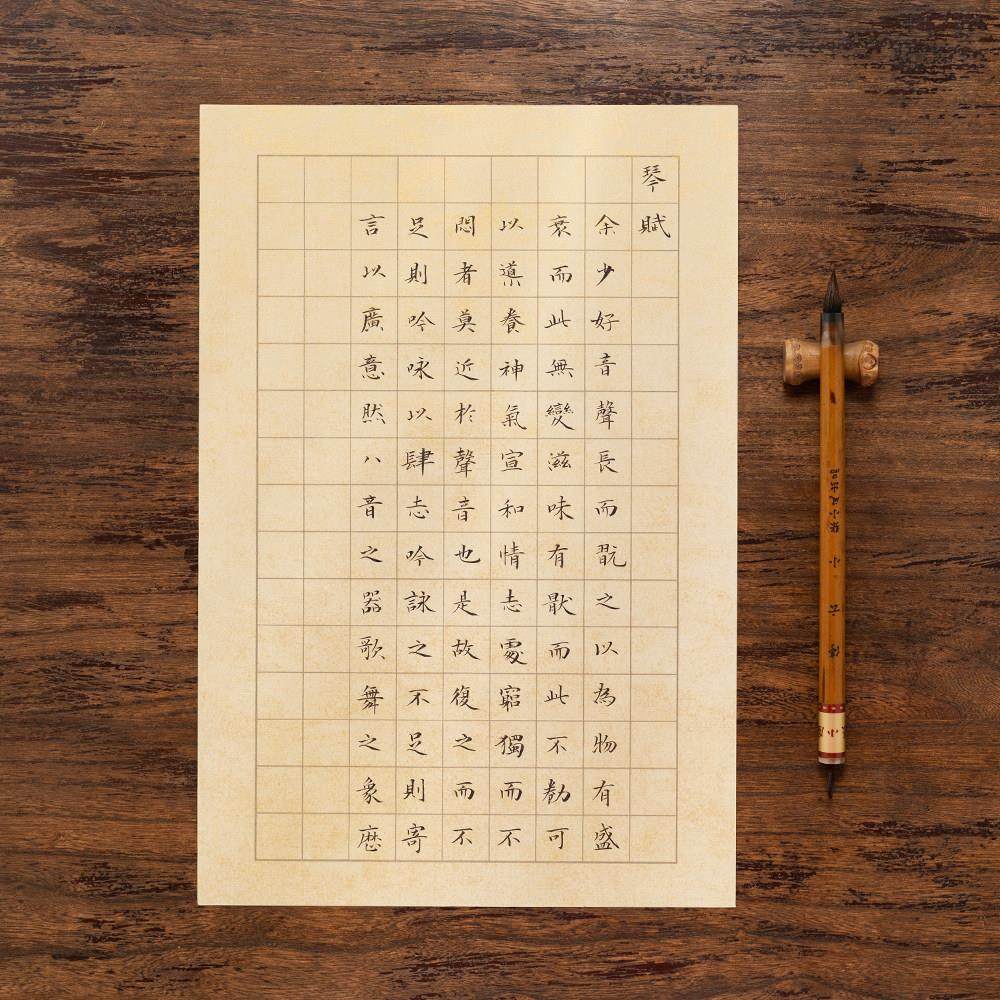 琴賦
余少好音聲長而翫之以為物有盛
衰而此無變滋味有猒而此不勌可
以導養神氣宣和情志處窮獨而不
悶者莫近於聲音也是故復之而不
足則吟咏以肆志吟詠之不足則寄
言以廣意然八音之器歌舞之象歷